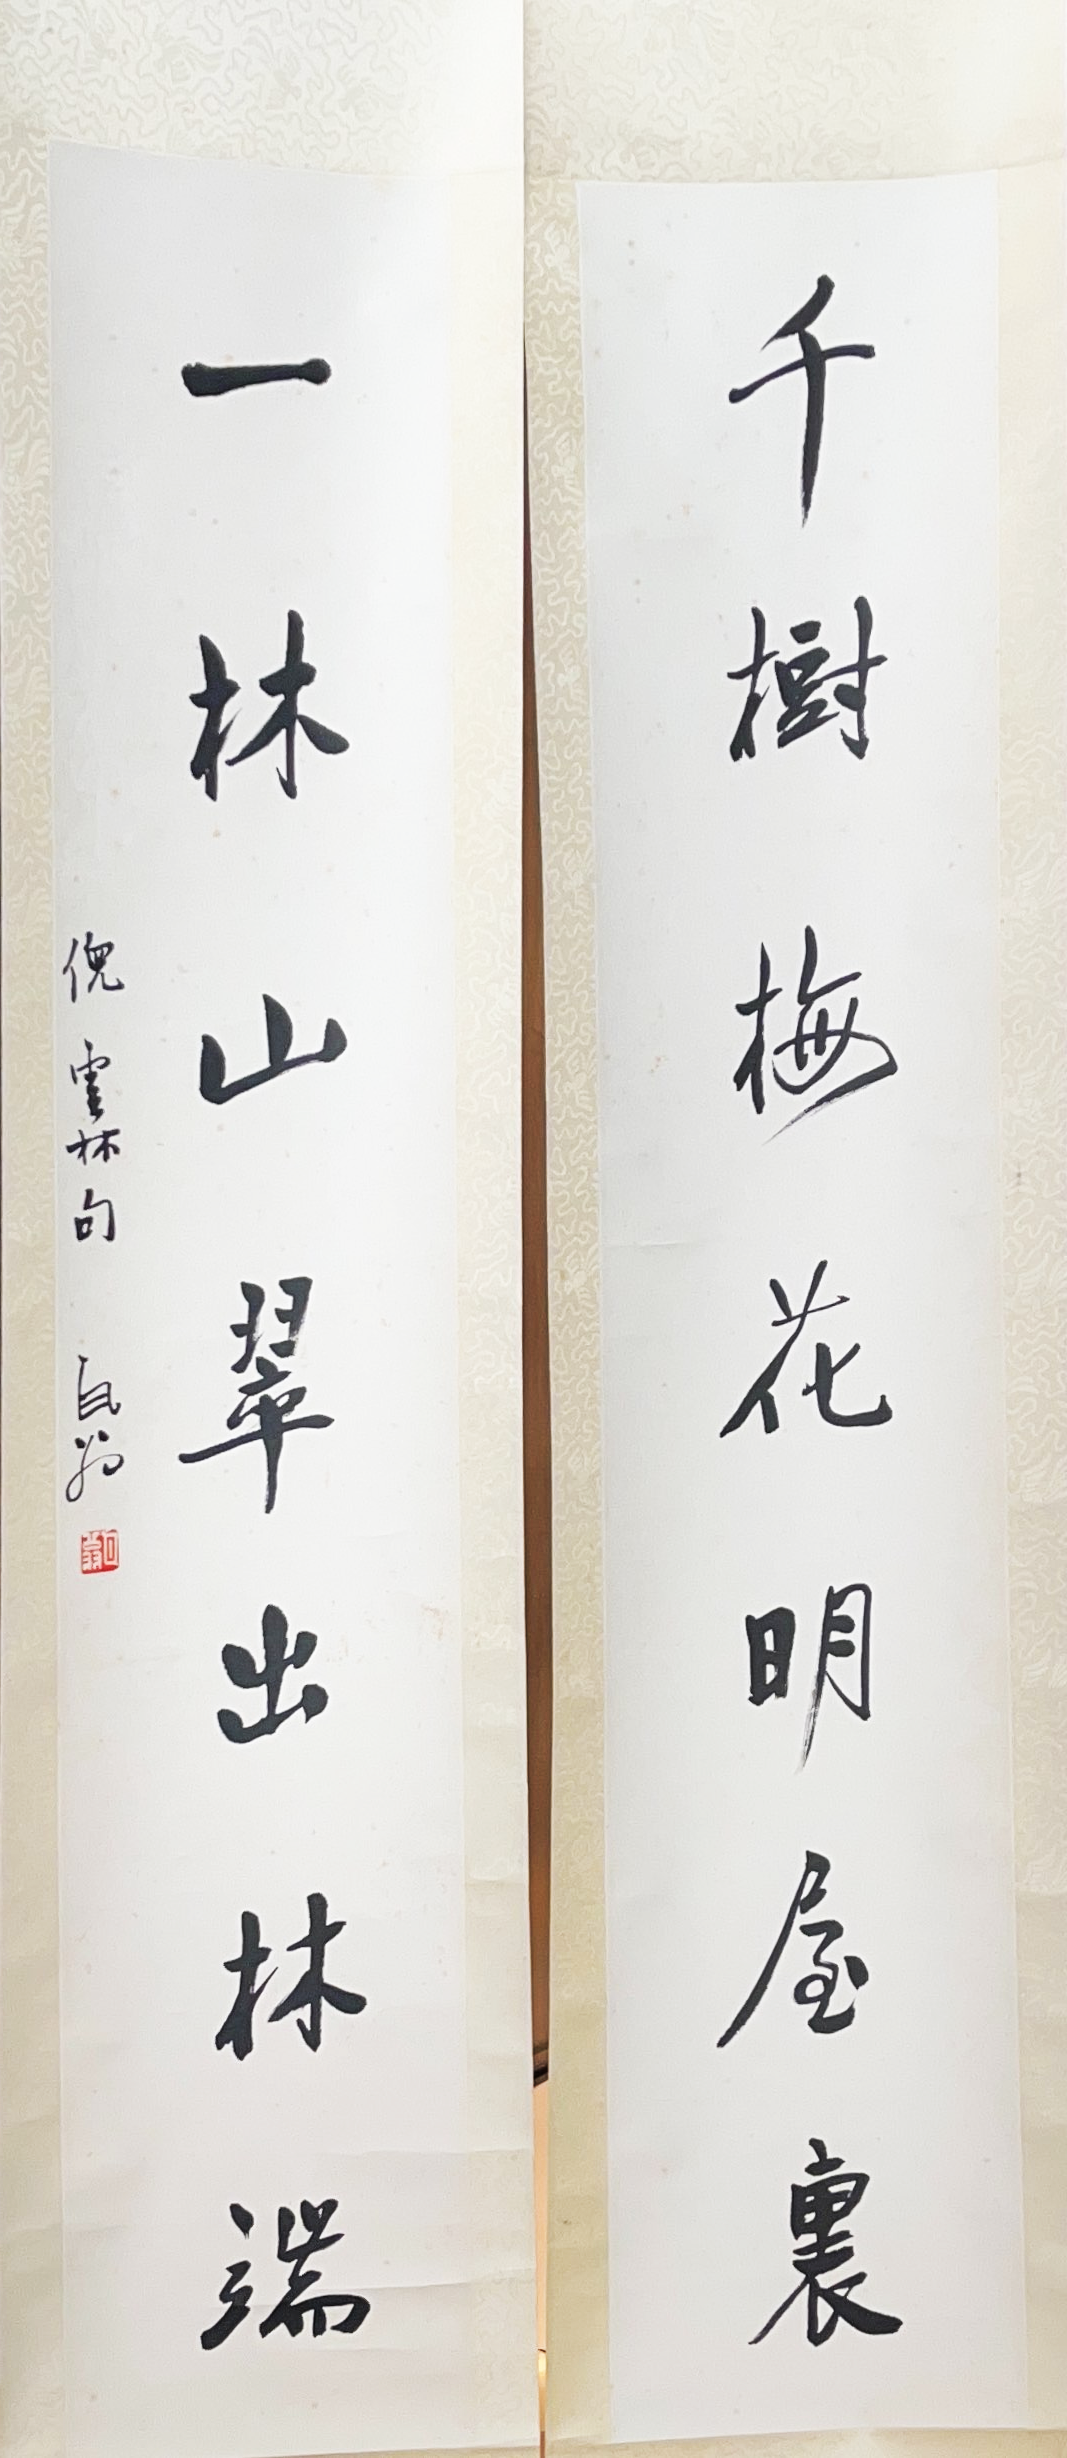 千樹梅花明屋裏
一林山翠出林端
倪雲林句
翁